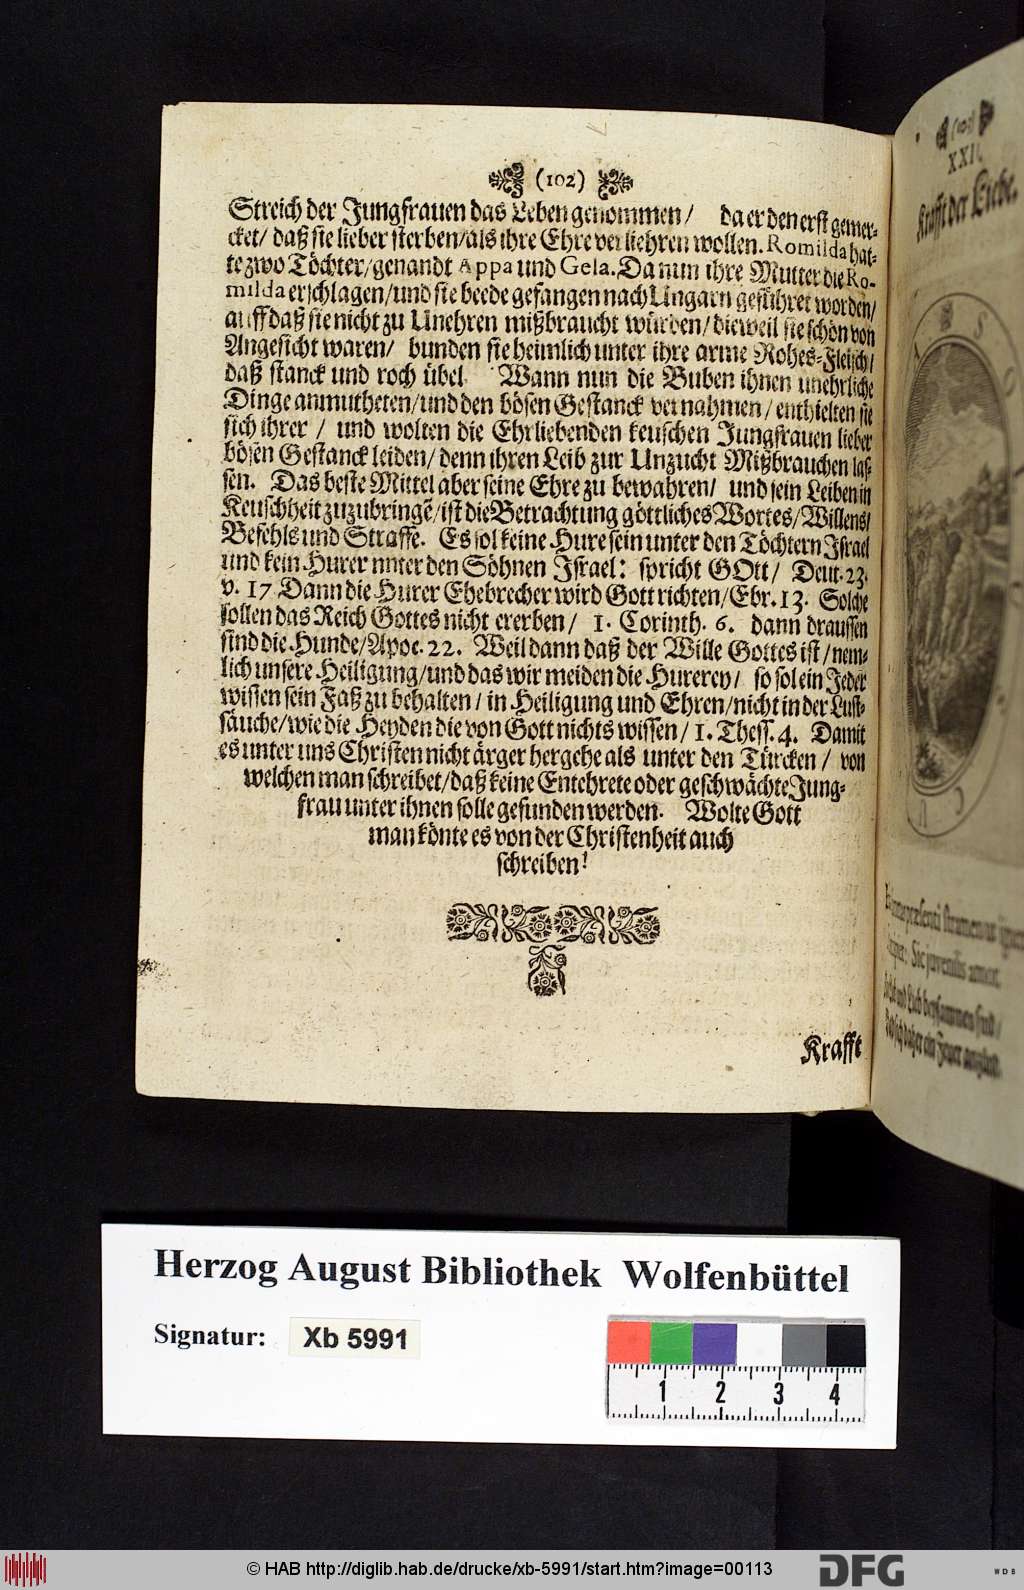 (102)
Streich der Jungfrauen das Leben genommen/ da er den erst gemer-
cket/ daß sie lieber sterben/als ihre Ehre verliehren wollen. Romilda hat-
te zwo Töchter/genandt Appa und Gela. Da nun ihre Mutter die Ro-
milda erschlagen/und sie beede gefangen nach Ungarn geführet worden/
auff daß sie nicht zu Unehren mißbraucht würden/dieweil sie schön von
Angesicht waren/ bunden sie heimlich unter ihre arme Rohes-Fleisch/
daß stanck und roch übel Wann nun die Buben ihnen unehrliche
Dinge anmutheten/und den bösen Gestanck vernahmen/enthielten sie
sich ihrer / und wolten die Ehrliebenden keuschen Jungfrauen lieber
bösen Gestanck leiden/denn ihren Leib zur Unzucht Mißbrauchen las-
sen. Das beste Mittel aber seine Ehre zu bewahren/ und sein Leiben in
Keuschheit zuzubringē/ist die Betrachtung göttliches Wortes/Willens/
Befehls und Straffe. Es sol keine Hure sein unter den Töchtern Israel
und kein Hurer nnter den Söhnen Israel: spricht GOtt/ Deut. 23.
v. 17 Dann die Hurer Ehebrecher wird Gott richten/Ebr. 13. Solche
sollen das Reich Gottes nicht ererben/ 1. Corinth. 6. dann draussen
sind die Hunde/Apoc. 22. Weil dann daß der Wille Gottes ist/nem-
lich unsere Heiligung/und das wir meiden die Hurerey/ so sol ein Jeder
wissen sein Faß zu behalten/in Heiligung und Ehren/nicht in der Lust-
säuche/wie die Heyden die von Gott nichts wissen/1. Thess. 4. Damit
es unter uns Christen nicht ärger hergehe als unter den Türcken/ von
welchen man schreibet/daß keine Entehrete oder geschwächte Jung-
frau unter ihnen solle gefunden werden. Wolte Gott
man könte es von der Christenheit auch
schreiben!
Krafft
Krafft der Liebe.
Herzog August Bibliothek Wolfenbüttel
Signatur: Xb 5991
1 2 3 4
© HAB http://diglib.hab.de/drucke/xb-5991/start.htm?image=00113
DFG
WDB